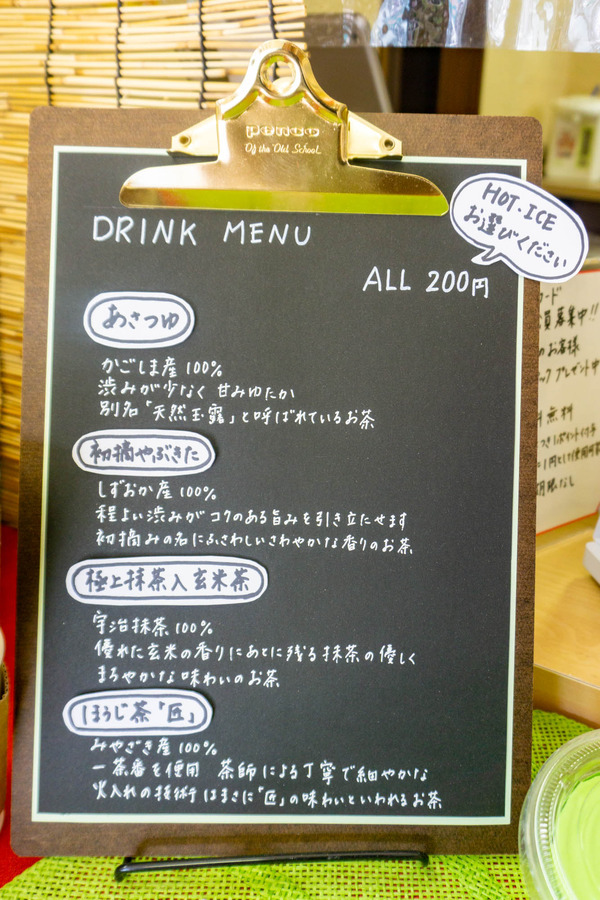 penco
Of the "Old School"
DRINK MENU
HOT・ICE
お選びください
ALL 200円
あさつゆ
かごしま産 100%
渋みが少なく 甘みゆたか
別名「天然玉露」と呼ばれているお茶
初摘やぶきた
しずおか産 100%
程よい渋みが コクのある旨みを引き立たせます
初摘みの名にふさわしいさわやかな香りのお茶
極上抹茶入玄米茶
宇治抹茶 100%
優れた玄米の香りにあとに残る抹茶の優しく
まろやかな味わいのお茶
ほうじ茶「匠」
みやざき産 100%
一茶番を使用 茶師による丁寧で細やかな
火入れの技術はまさに「匠」の味わいといわれるお茶
カード
員募集中!!
のお客様
ック プレゼント中
無料
限なし